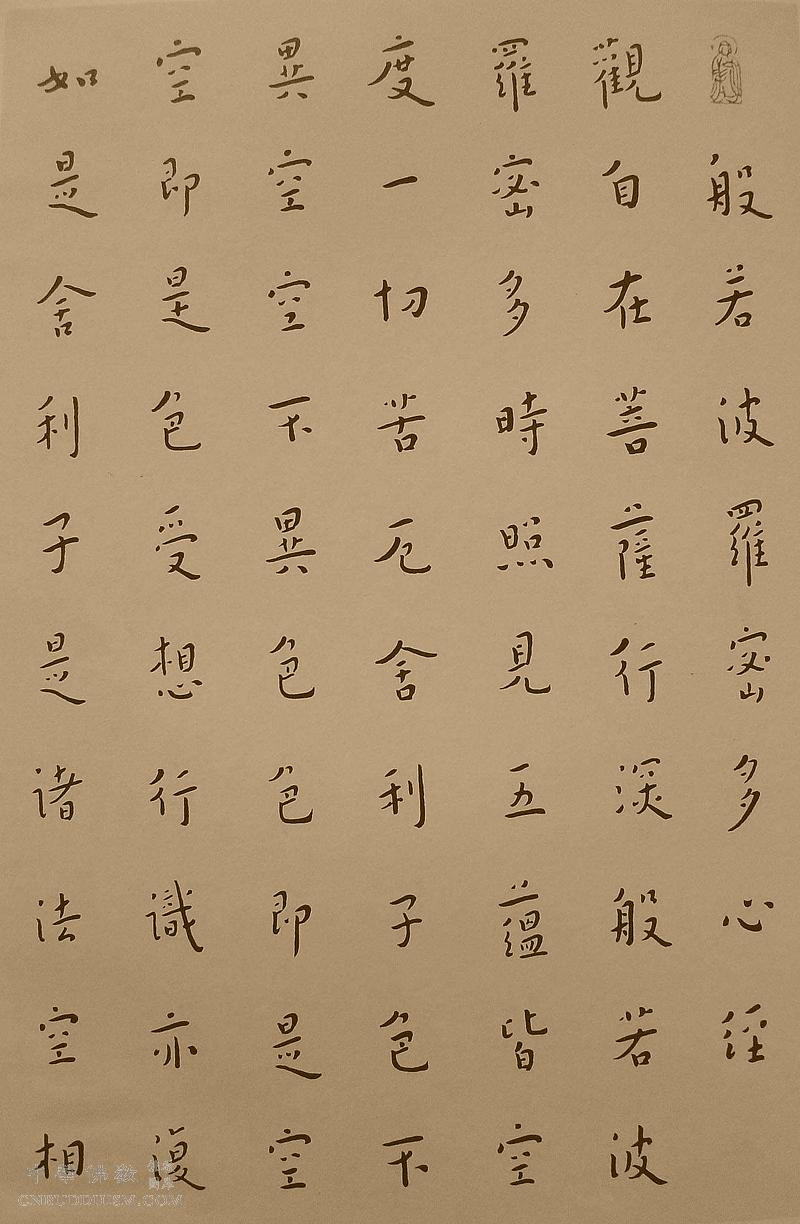 般若波羅密多心經
觀自在菩薩行深般若波
羅密多時照見五蘊皆空
度一切苦厄舍利子色不
異空空不異色色即是空
空即是色受想行識亦復
如是舍利子是諸法空相
中華佛教
CNBUDDHISM.COM